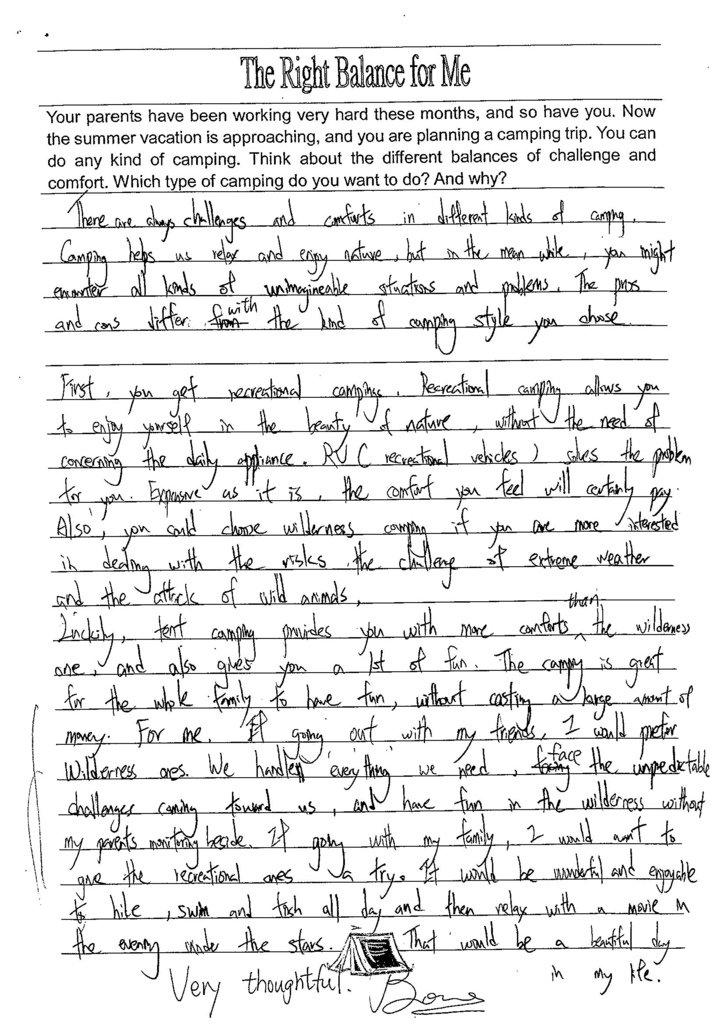 The Right Balance for Me
Your parents have been working very hard these months, and so have you. Now
the summer vacation is approaching, and you are planning a camping trip. You can
do any kind of camping. Think about the different balances of challenge and
comfort. Which type of camping do you want to do? And why?
There are always challenges and comforts in different kinds of camping.
Camping helps us relax and enjoy nature, but in the mean while, you might
encounter all kinds of unimagineable situations and problems. The pros
and cons differ with the kind of camping style you choose.
First, you get recreational campings. Recreational camping allows you
to enjoy yourself in the beauty of nature, without the need of
concerning the daily appliance. RV (recreational vehicles) solves the problem
for you. Expensive as it is, the comfort you feel will certainly pay.
Also, you could choose wilderness camping if you are more interested
in dealing with the risks the challenge of extreme weather
and the attack of wild animals,
Luckily, tent camping provides you with more comforts than the wilderness
one, and also gives you a lot of fun. The camping is great
for the whole family to have fun, without costing a large amount of
money. For me. If going out with my friends, I would prefer
Wilderness ones. We handle everything we need, face the unpredictable
challenges coming toward us, and have fun in the wilderness without
my parents monitoring beside. If going with my family, I would want to
give the recreational ones a try. It would be wonderful and enjoyable
to hike, swim and fish all day and then relax with a movie in
the evening under the stars. That would be a beautiful day
in my life.
Very thoughtful.